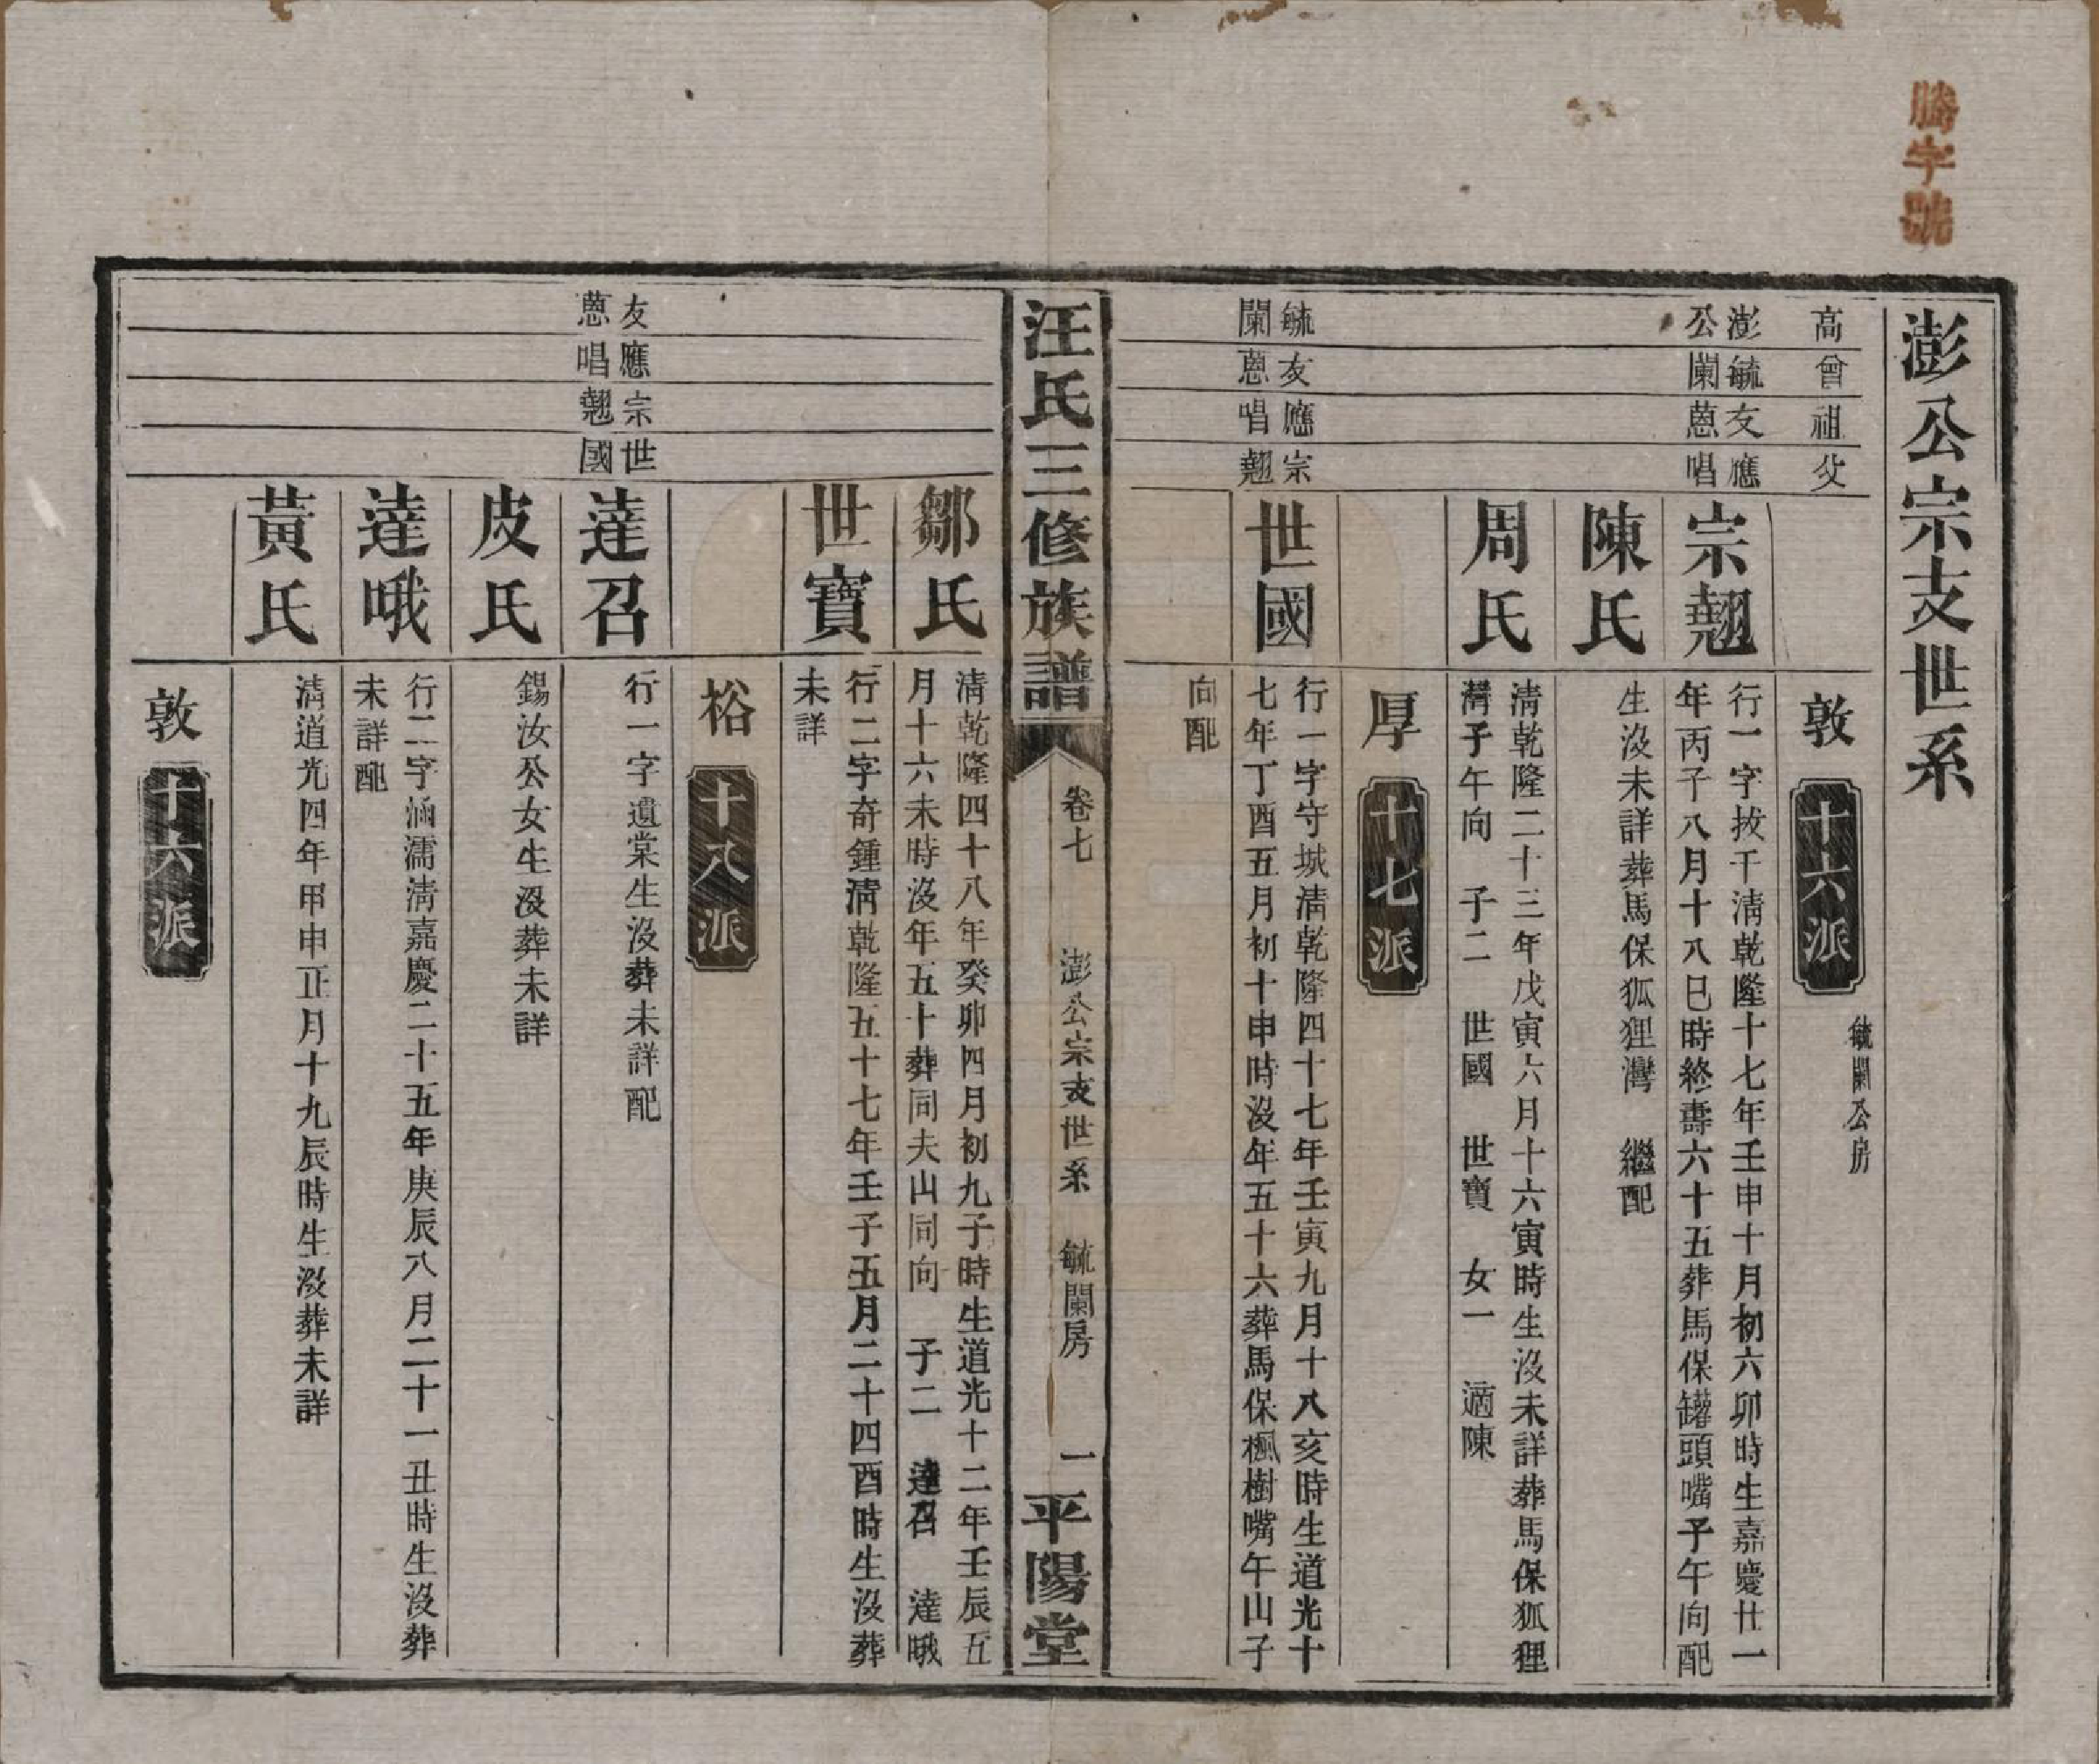 騰字號
澎公宗支世系
高 曾 祖 父
敦 十六派
毓闌公房
澎公 毓闌 友蒽 應唱
宗翹
行一字拔千清乾隆十七年壬申十月初六卯時生嘉慶廿一
年丙子八月十八巳時終壽六十五葬馬保罐頭嘴子午向配
陳氏
生沒未詳葬馬保狐狸灣 繼配
周氏
清乾隆二十三年戊寅六月十六寅時生沒未詳葬馬保狐狸
灣子午向 子二 世國 世寶 女一 適陳
厚 十七派
毓闌 友蒽 應唱 宗翹
世國
行一字守城清乾隆四十七年壬寅九月十八亥時生道光十
七年丁酉五月初十申時沒年五十六葬馬保楓樹嘴午山子
向配
汪氏三修族譜 卷七 澎公宗支世系 毓闌房 一 平陽堂
鄒氏
清乾隆四十八年癸卯四月初九子時生道光十二年壬辰五
月十六未時沒年五十葬同夫山同向 子二 達召 達哦
世寶
行二字奇鍾清乾隆五十七年壬子五月二十四酉時生沒葬
未詳
裕 十八派
友蒽 應唱 宗翹 世國
達召
行一字遺棠生沒葬未詳配
皮氏
錫汝公女生沒葬未詳
達哦
行二字涵濡清嘉慶二十五年庚辰八月二十一丑時生沒葬
未詳配
黃氏
清道光四年甲申正月十九辰時生沒葬未詳
敦 十六派